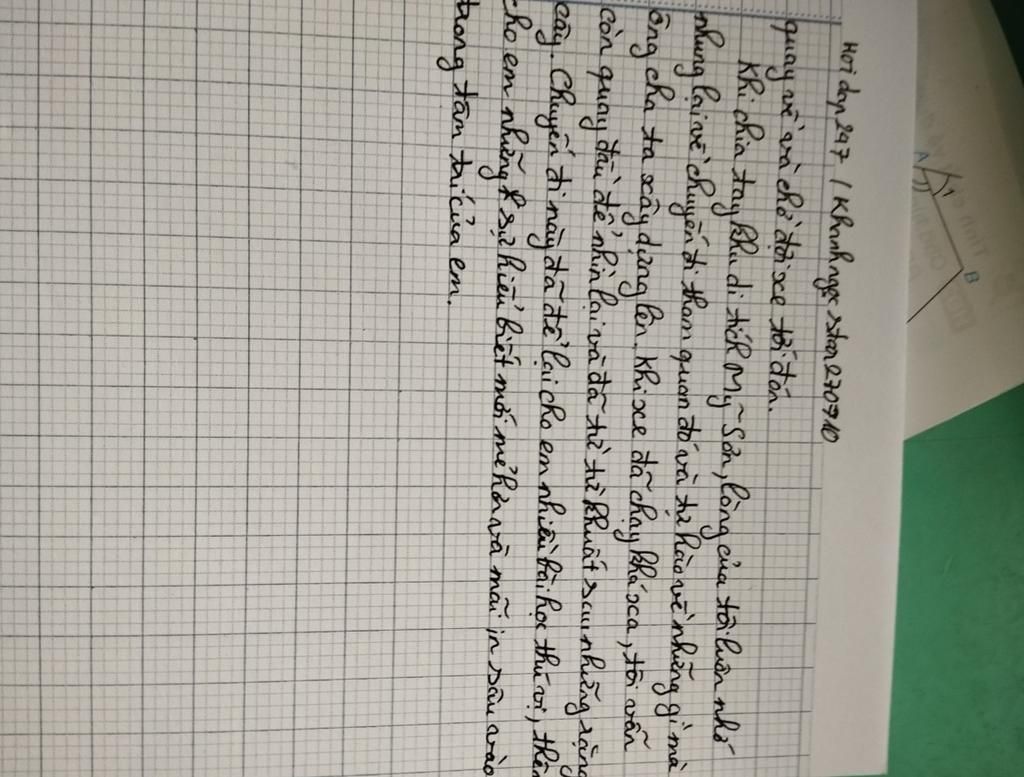 Hoi dap 247 / Khanhngocstan270910
quay về và chờ đợi xe tới đón.
Khi chia tay khu di tích Mỹ Sơn, lòng của tôi luôn nhớ
nhung lại về chuyến đi tham quan đó và tự hào về những gì mà
ông cha ta xây dựng lên. Khi xe đã chạy khá xa, tôi vẫn
còn quay đầu để nhìn lại và đã từ từ khuất sau những rặng
cây. Chuyến đi này đã để lại cho em nhiều bài học thú vị, thêm
cho em những sự hiểu biết mới mẻ hơn và mãi in sâu vào
trong tâm trí của em.
A
B